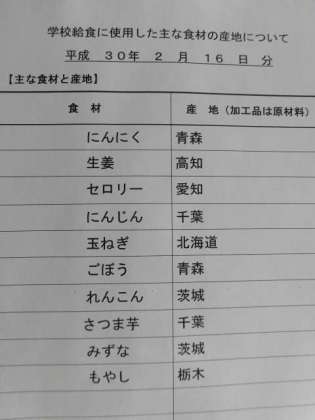 学校給食に使用した主な食材の産地について
平成 30年 2 月 16 日 分
【主な食材と産地】
食 材 産 地（加工品は原材料）
にんにく 青森
生姜 高知
セロリー 愛知
にんじん 千葉
玉ねぎ 北海道
ごぼう 青森
れんこん 茨城
さつま芋 千葉
みずな 茨城
もやし 栃木